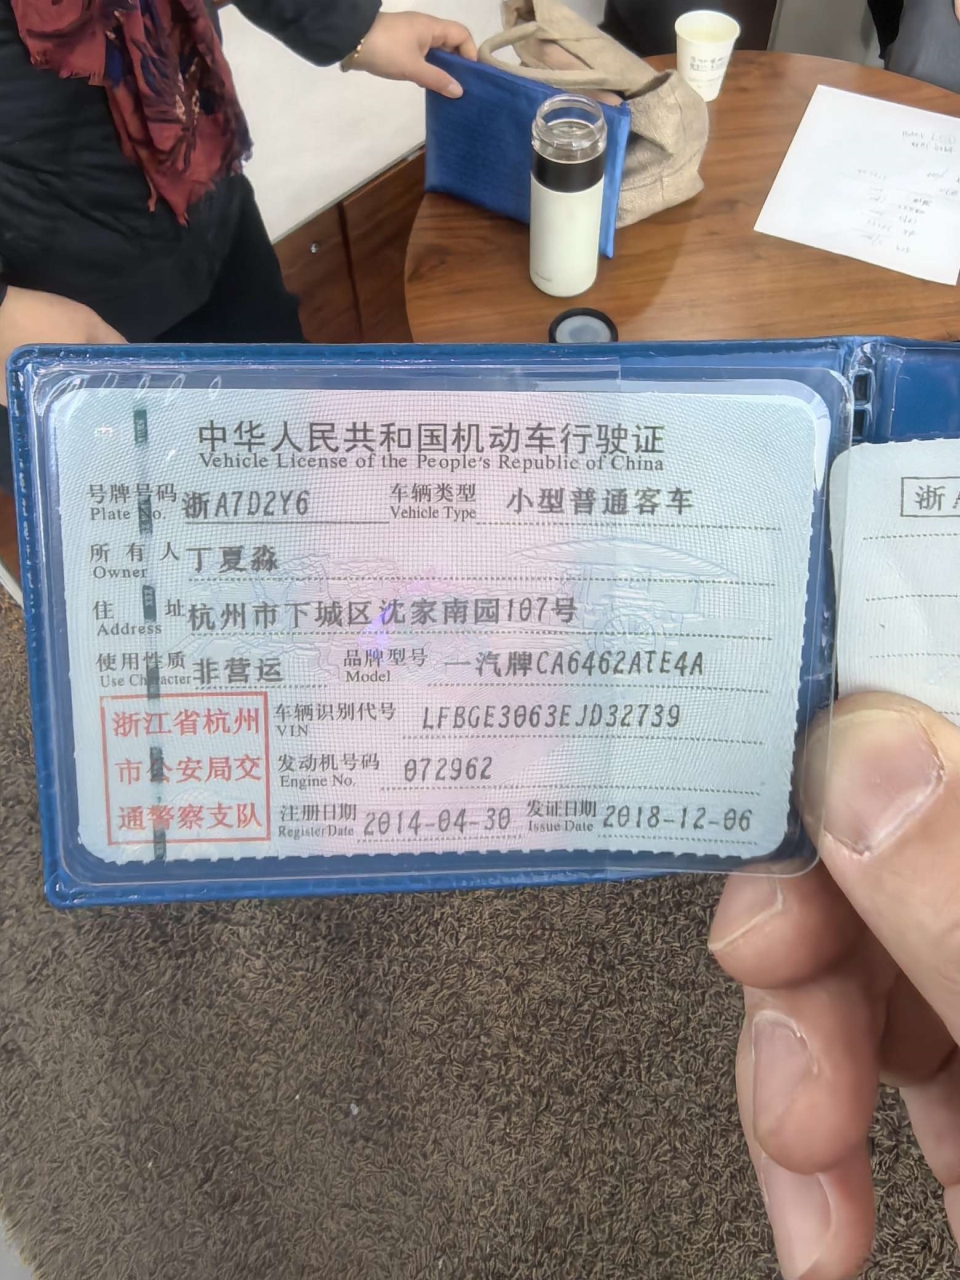 中华人民共和国机动车行驶证
Vehicle License of the People's Republic of China
号牌号码 浙A7D2Y6 车辆类型 小型普通客车
Plate No. Vehicle Type
所有人 丁夏淼
Owner
住址 杭州市下城区沈家南园107号
Address
使用性质 非营运 品牌型号 一汽牌CA6462ATE4A
Use Character Model
浙江省杭州
市公安局交
通警察支队
车辆识别代号 LFBGE3063EJD32739
VIN
发动机号码 072962
Engine No.
注册日期 2014-04-30 发证日期 2018-12-06
Register Date Issue Date
浙A